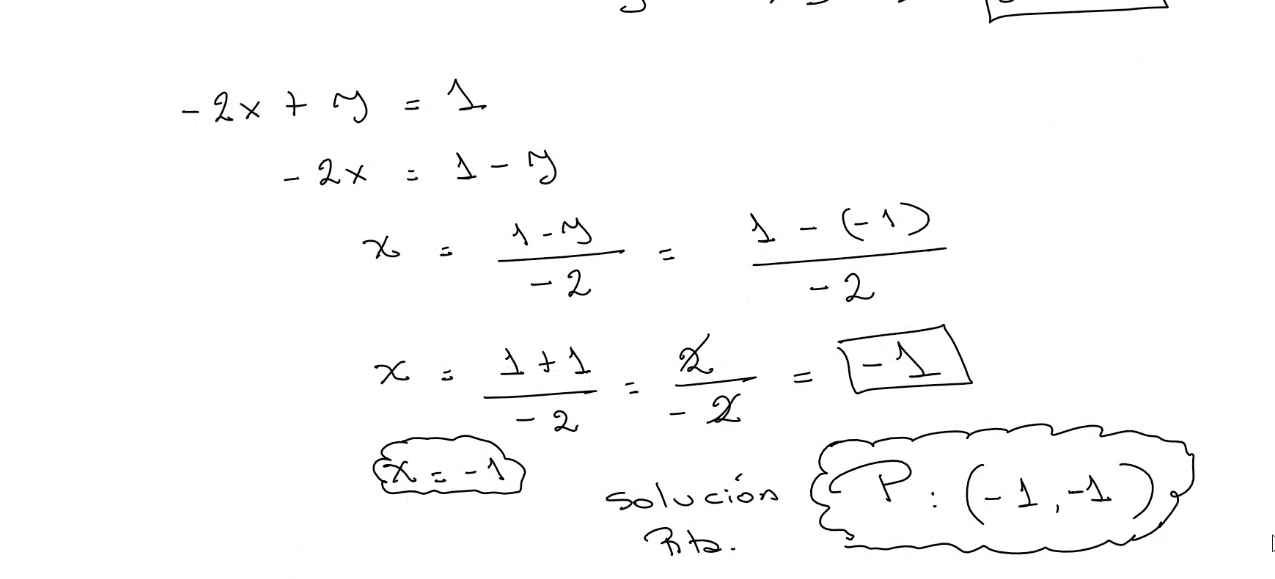 -2x + y = 1
-2x = 1 - y
x = (1 - y)/(-2) = (1 - (-1))/(-2)
x = (1 + 1)/(-2) = 2/(-2) = -1
x = -1
solución P: (-1, -1)
Rta.